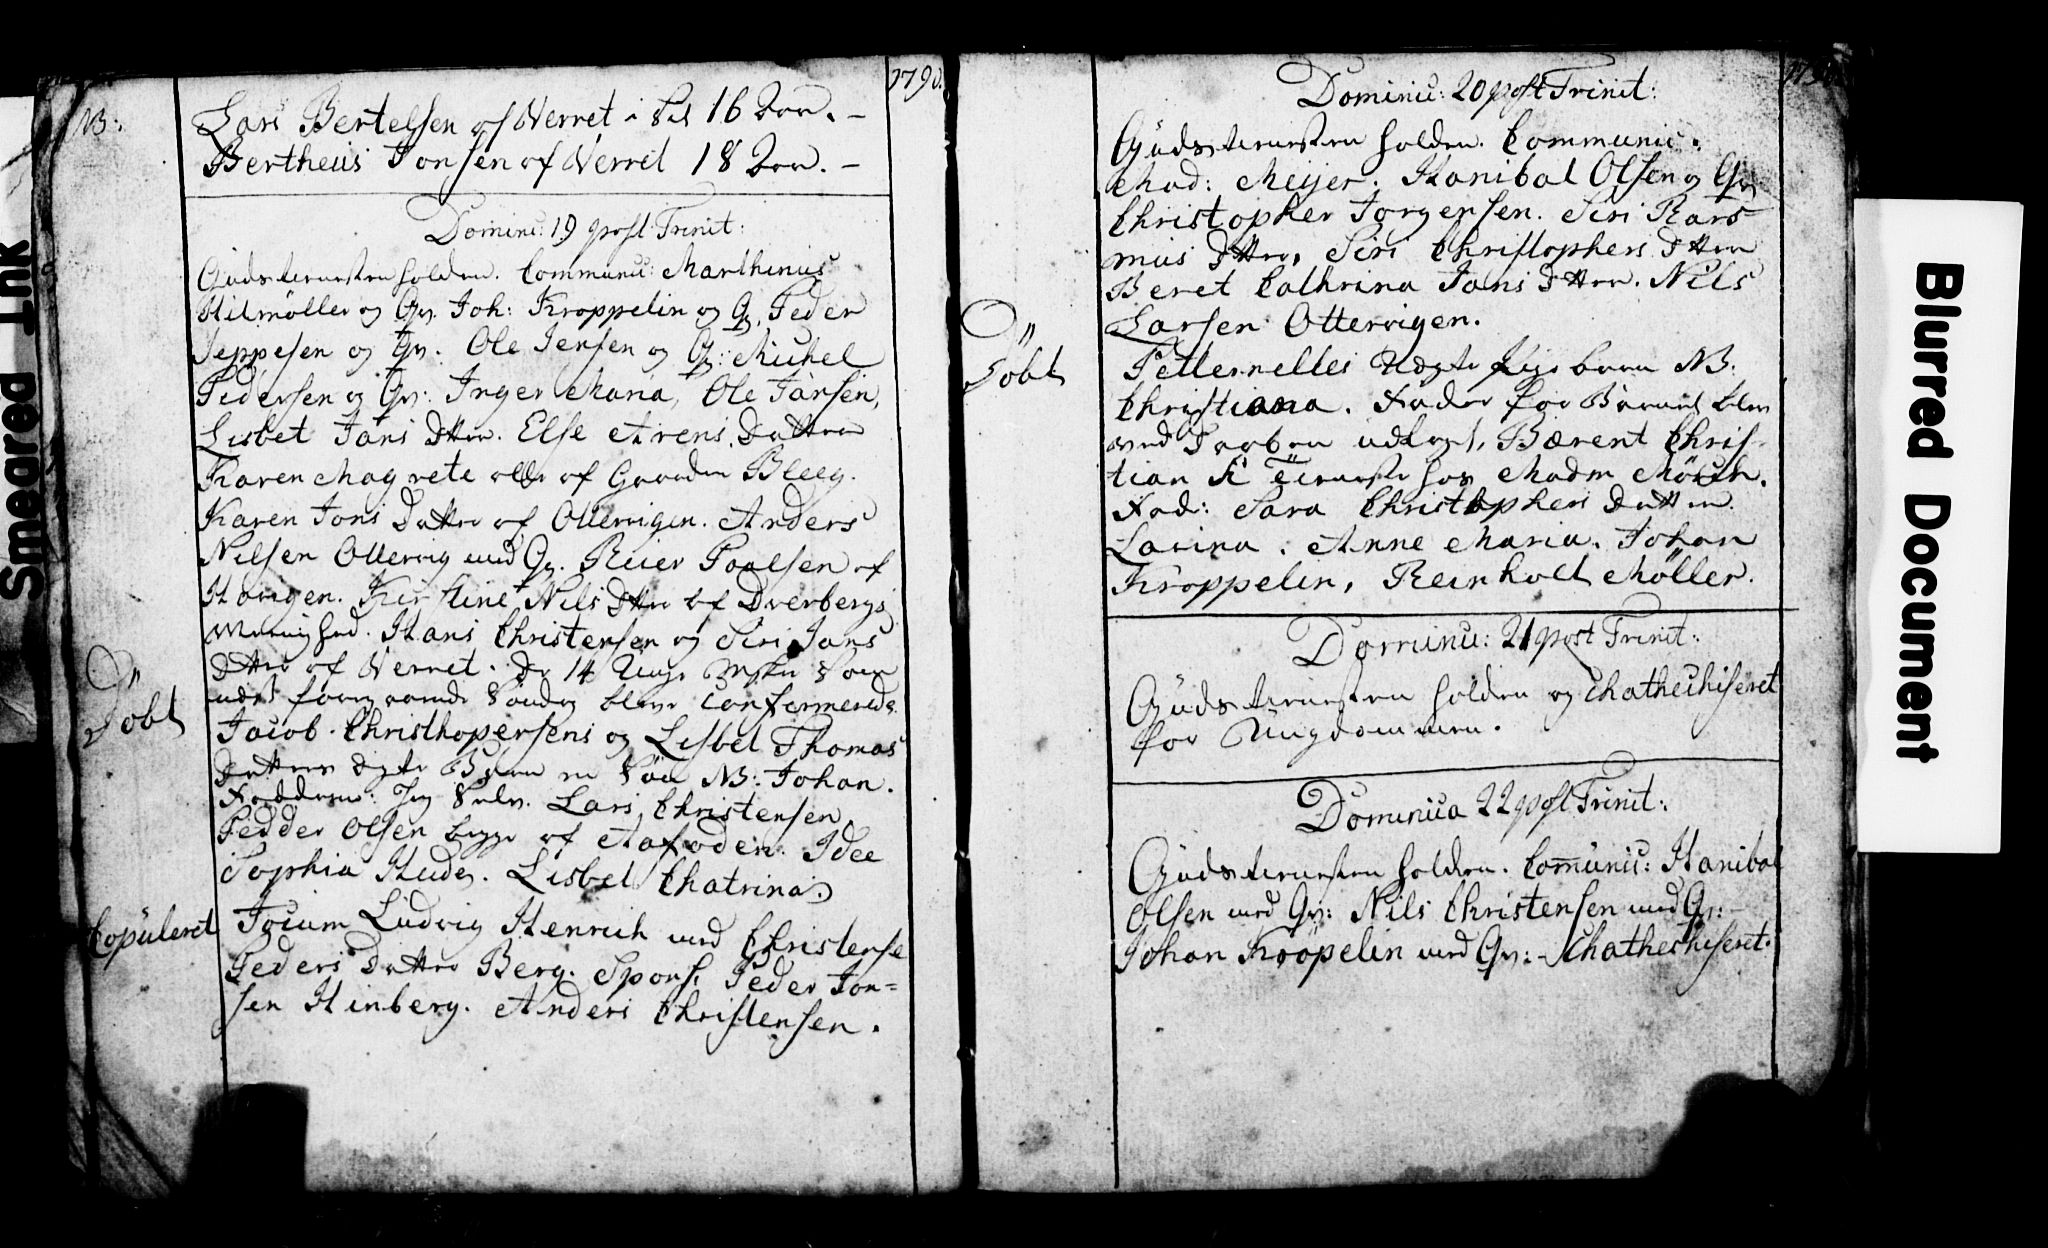 1790.
NB:
Lars Bertelsen af Verret i Sil 16 Aar. –
Bertheus Jonsen af Verret 18 Aar. –
Dominic: 19 post Trinit:
Gudstienesten holden. Communic: Marthinus
Hilmöller og Qv. Joh: Kroppelin og Q. Peder
Jeppesen og Qv: Ole Jensen og Q: Michel
Pedersen og Qv: Inger Maria, Ole Jansen,
Lisbet Jans Dtter. Else Arens Datter
Karen Magrete alle af Gaarden Bleeg.
Karen Jons Datter af Ottervigen. Anders
Nilsen Ottervig med Qv. Reier Poalsen af
Havigen. Kirstine Nils Dtter af Dverbergs
Menighed. Hans Christensen og Siri Jans
Dtter af Verret. De 14 Unge som
næst foregaaende Söndag bleve Confermerede.
Döbt
Jacob Christhopersens og Lisbet Thomas
Datters ægte Barn en Sön NB: Johan.
Fadderne: Jeg Selv. Lars Christensen,
Pedder Olsen begge af Aafioden. Idee
Sophia Heide. Lisbet Chatrina.
Copuleret
Jocum Ludvig Henrich med Christense
Peders Datter Berg. Spons. Peder Jon=
sen Hinberg. Anders Christensen.
Dominic: 20 post Trinit:
Gudstienesten holden. Communic:
Mad: Meijer. Hanibal Olsen og Qv
Christopher Jorgensen. Siri Ras
mus Dtter, Siri Christophers Dtter
Beret Cathrina Jans Dtter. Nils
Larsen Ottervigen.
Döbt
Petternelles Uægte Pige barn NB:
Christiana. Fader for Barnet blev
ved Daaben udlagt, Bærent Chris-
tian K Tieneste hos Madm Mörch.
Fad: Sara Christophers Datter
Lavina. Anne Maria. Johan
Kroppelin, Reinholt Möller.
Dominic: 21 post Trinit:
Gudstienesten holden og Chathechiseret
for Ungdommen.
Dominica 22 post Trinit:
Gudstienesten holden. Comunic: Hanibal
Olsen med Qv: Nils Christensen med Qv:
Johan Kröpelin med Qv: - Chathechiseret.
Smeared Ink
Blurred Document